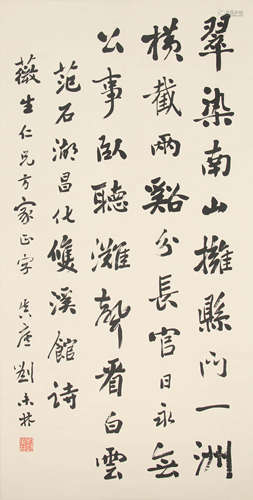 翠染南山擁縣門一洲
橫截兩谿分長官日永無
公事臥聽灘聲看白雲
范石湖昌化雙溪館詩
薇生仁兄方家正字 劉小林